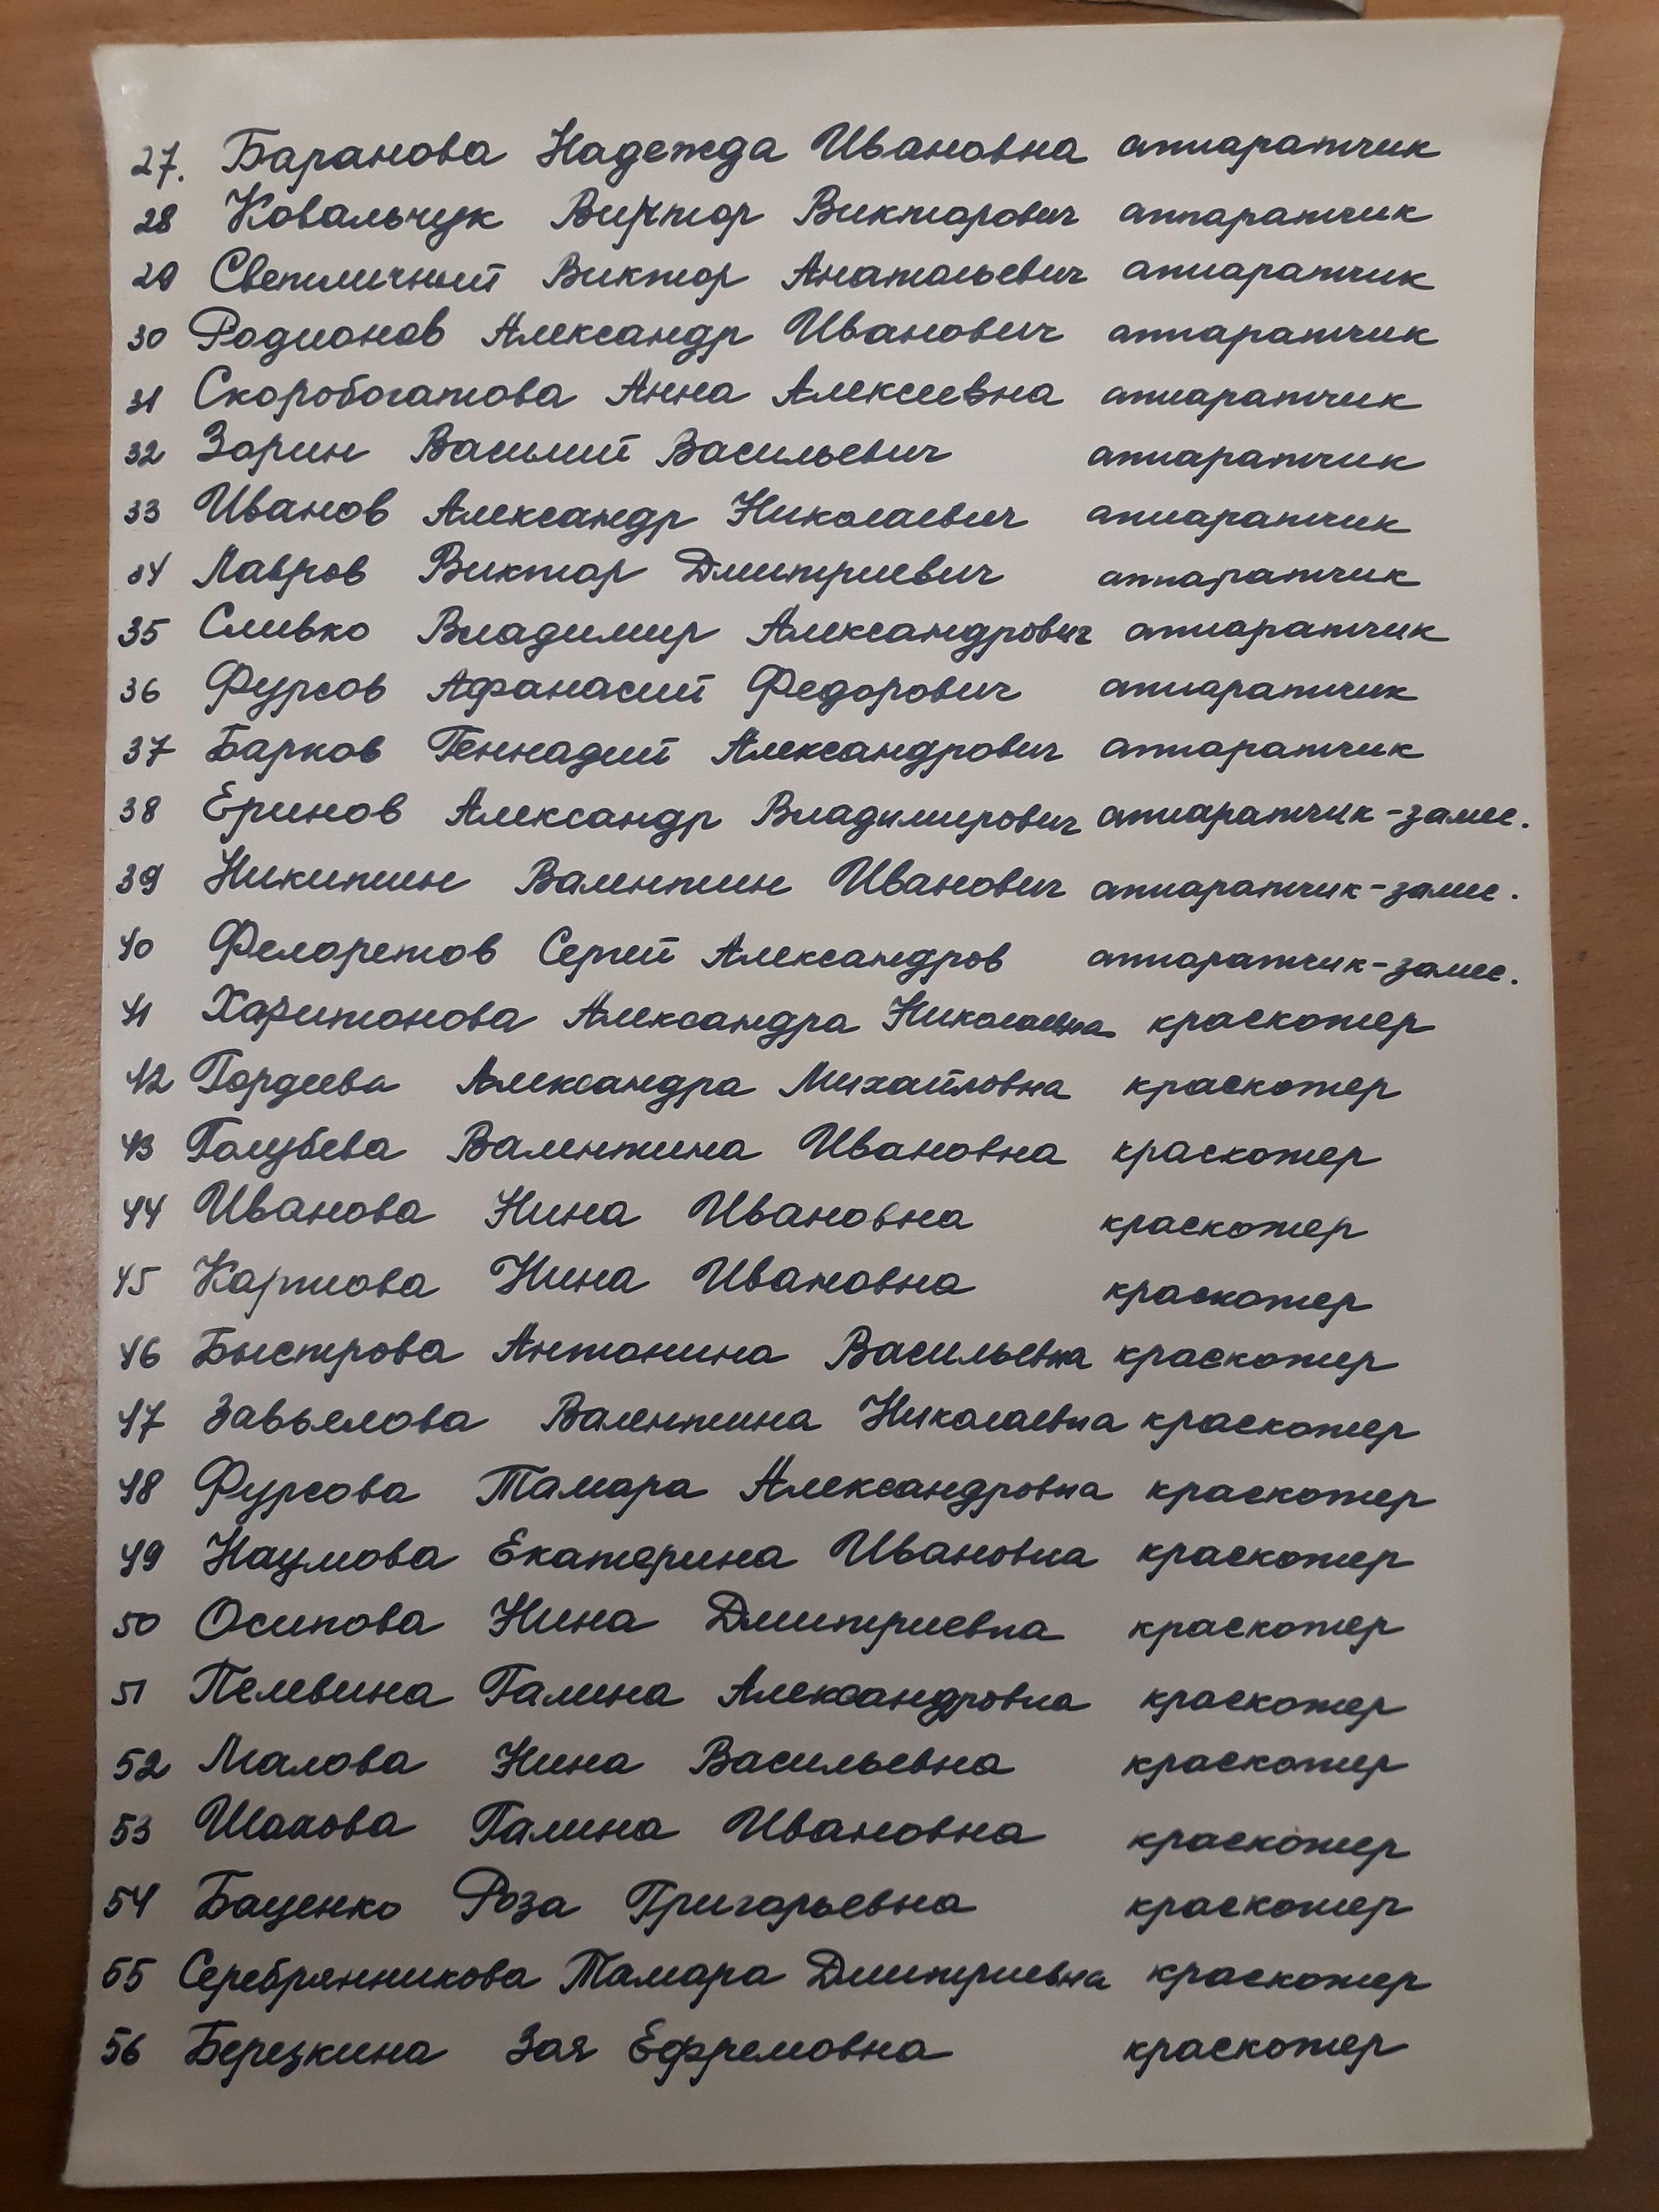 27. Баранова Надежда Ивановна аппаратчик
28 Ковальчук Виктор Викторович аппаратчик
29 Светличный Виктор Анатольевич аппаратчик
30 Родионов Александр Иванович аппаратчик
31 Скоробогатова Анна Алексеевна аппаратчик
32 Зорин Василий Васильевич аппаратчик
33 Иванов Александр Николаевич аппаратчик
34 Лавров Виктор Дмитриевич аппаратчик
35 Сливко Владимир Александрович аппаратчик
36 Фурсов Афанасий Федорович аппаратчик
37 Барков Геннадий Александрович аппаратчик
38 Еринов Александр Владимирович аппаратчик-замес.
39 Никитин Валентин Иванович аппаратчик-замес.
40 Феларетов Сергей Александров аппаратчик-замес.
41 Харитонова Александра Николаевна краскотер
42 Гордеева Александра Михайловна краскотер
43 Голубева Валентина Ивановна краскотер
44 Иванова Нина Ивановна краскотер
45 Карпова Нина Ивановна краскотер
46 Быстрова Антонина Васильевна краскотер
47 Завьялова Валентина Николаевна краскотер
48 Фурсова Тамара Александровна краскотер
49 Наумова Екатерина Ивановна краскотер
50 Осипова Нина Дмитриевна краскотер
51 Пелевина Галина Александровна краскотер
52 Малова Нина Васильевна краскотер
53 Шахова Галина Ивановна краскотер
54 Баценко Роза Григорьевна краскотер
55 Серебрянникова Тамара Дмитриевна краскотер
56 Березкина Зоя Ефремовна краскотер